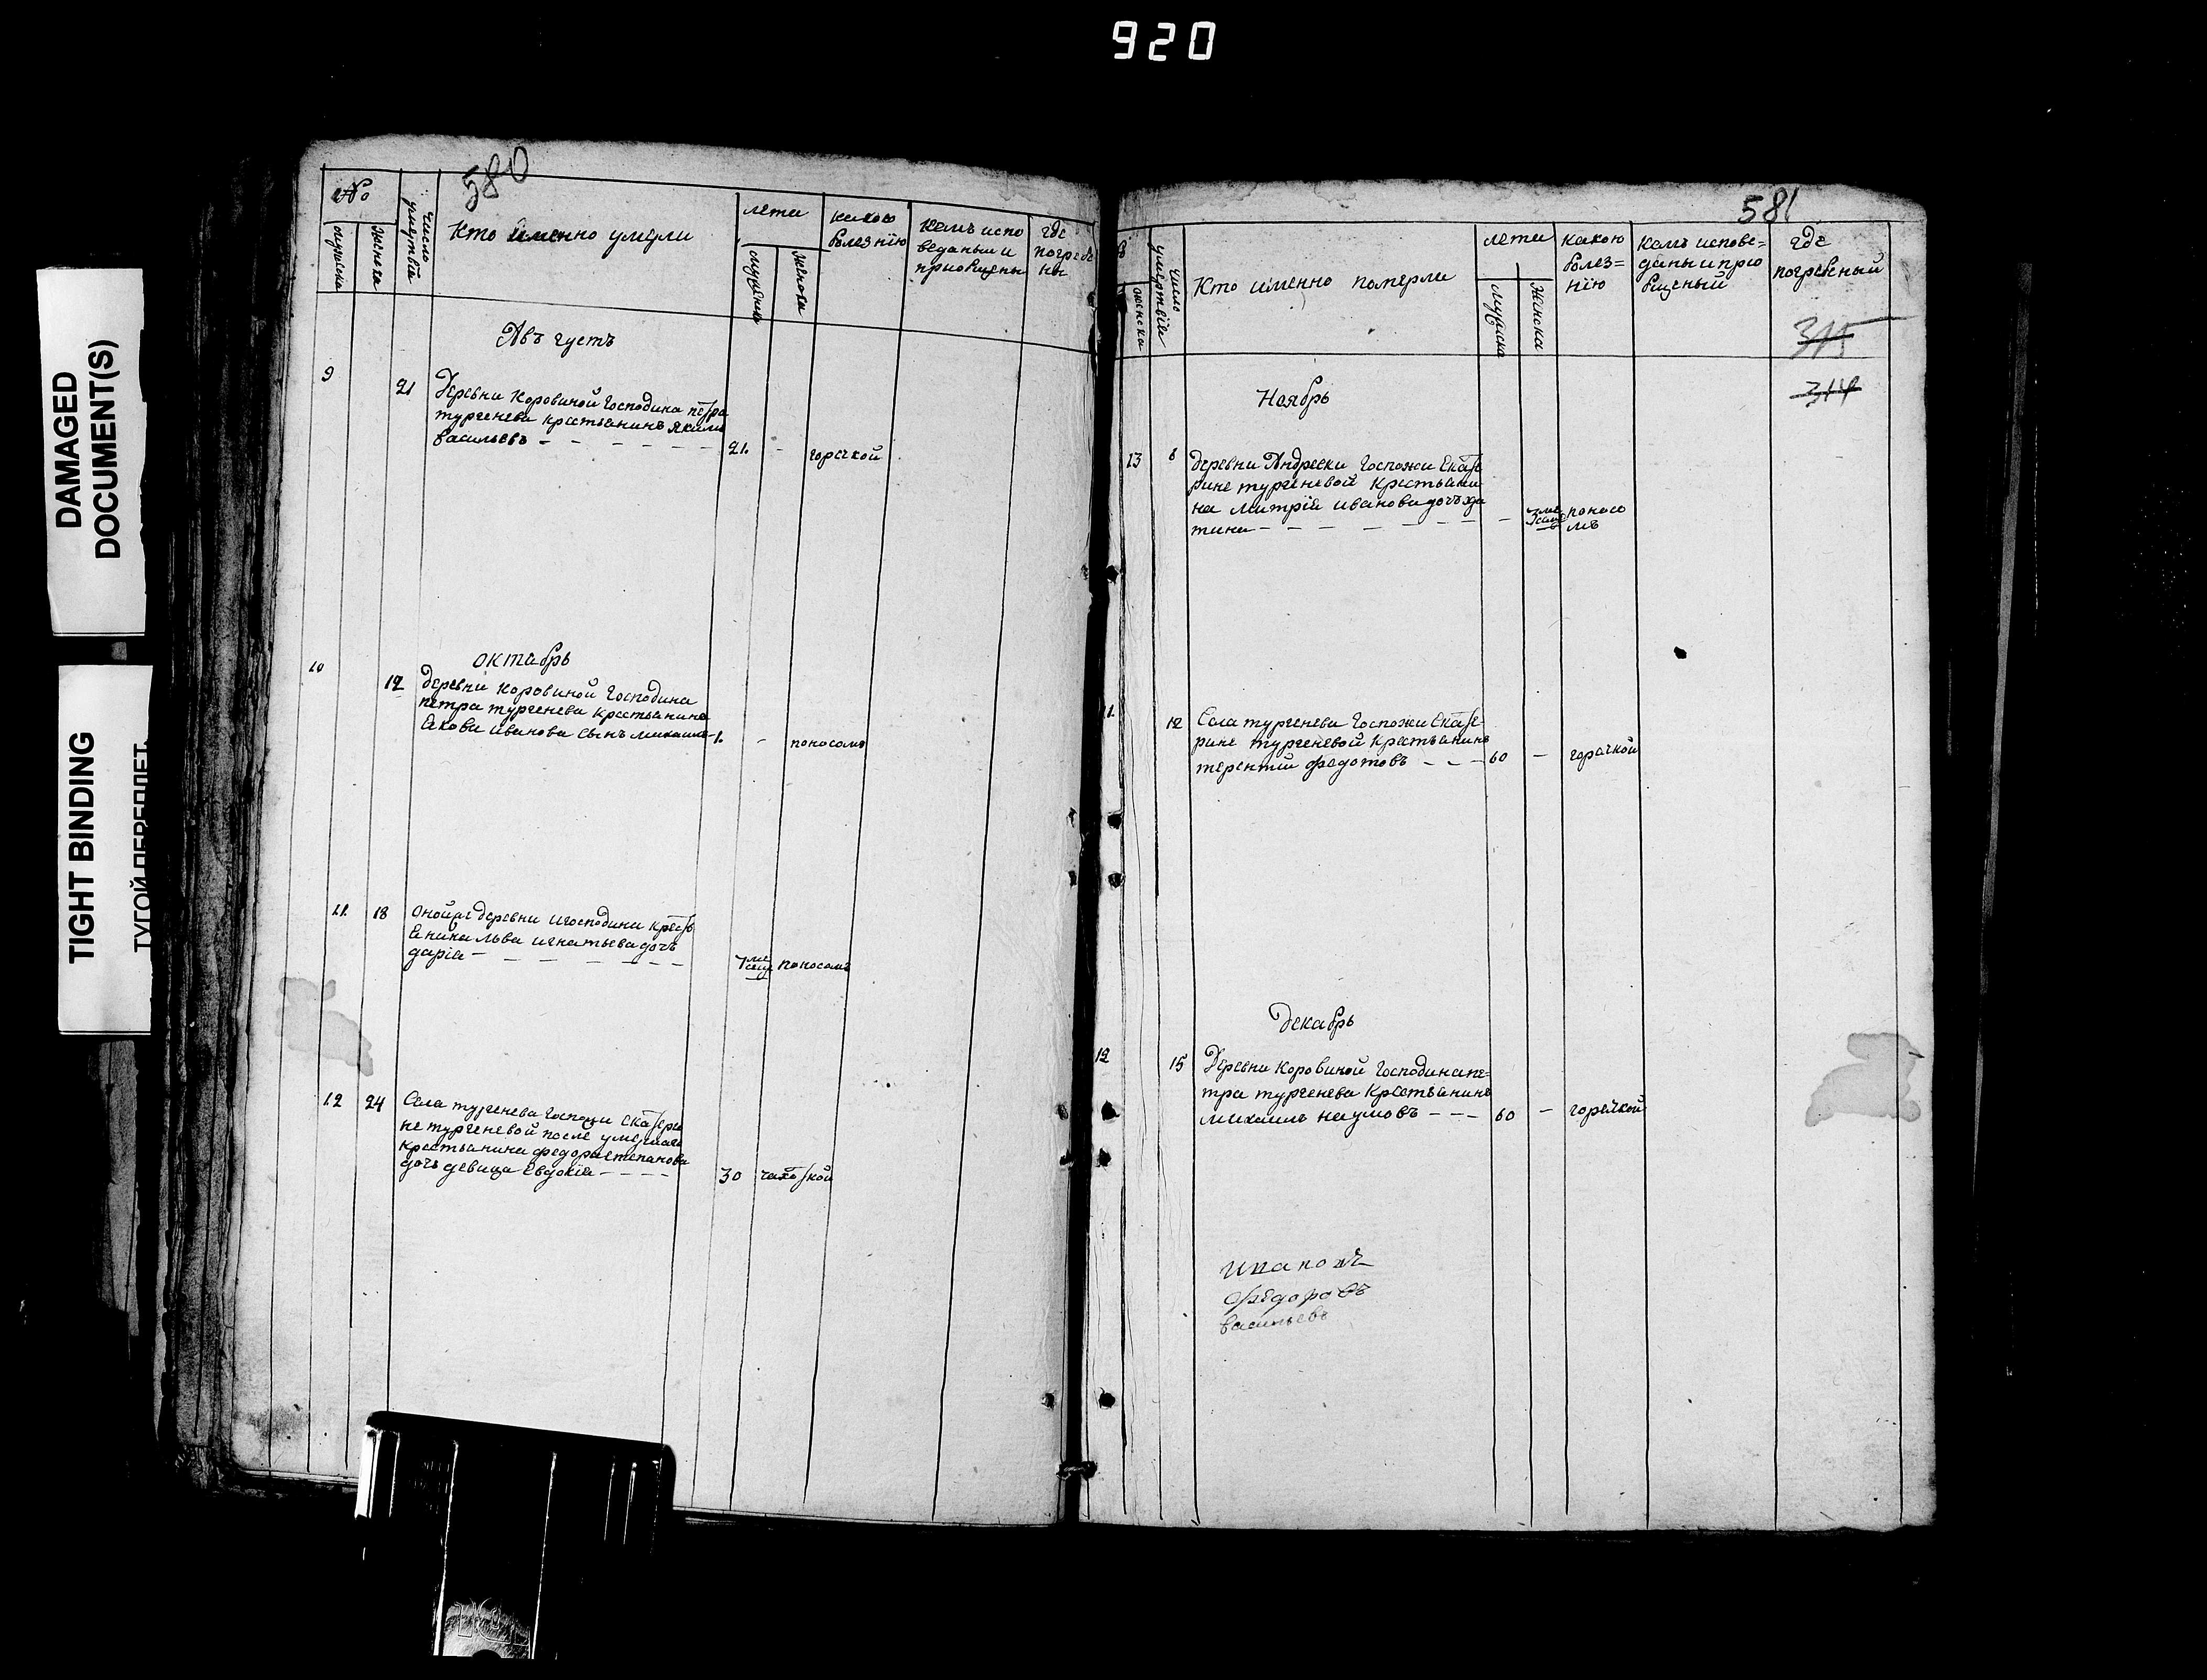 920
DAMAGED
DOCUMENT(S)
TIGHT BINDING
ТУГОЙ ПЕРЕПЛЕТ
580
№
мужеска
женска
число
умертвїя
Кто именно умерли
лета
мужеска
женска
какою
болезнїю
кемъ испо
веданы и
приобщены
где
погребе
ны
Авъ густъ
9
21
Деревни Коровиной Господина петра
тургенева крестьянинъ Якимъ
Васильевъ
21.
горячкой
октябрь
10
12
деревни Коровиной Господина
петра тургенева Крестьянина
Якова Иванова сынъ михаилъ
1.
поносомъ
11
18
оной же деревни игосподина крест
янина льва игнатьева дочь
дарїя
7 ме
сяц
поносомъ
12
24
Села тургенева Госпожи Екатери
не тургеневой после умершаго
крестьянина федора степанова
дочь девица Евдокїя
30
чахоткой
581
женска
число
умертвїя
Кто именно померли
лета
мужска
женска
какою
болез=
нїю
кемъ испове=
даны и прио
бщеный
где
погребеный
315
314
Ноябрь
13
6
деревни Андреевки Госпожи Екате
рине тургеневой Крестьяни
на Митрїя иванова дочь
тина
3 ме
сяц
поносо
мъ
11.
12
Села тургенева Госпожи Екате-
рине тургеневой Крестьянинъ
терентий федотовъ
60
горячкой
Декабрь
12
15
Деревни Коровиной Господина пе-
тра тургенева Крестьянинъ
михаилъ наумовъ
60
горячкой
федоровъ
васильевъ